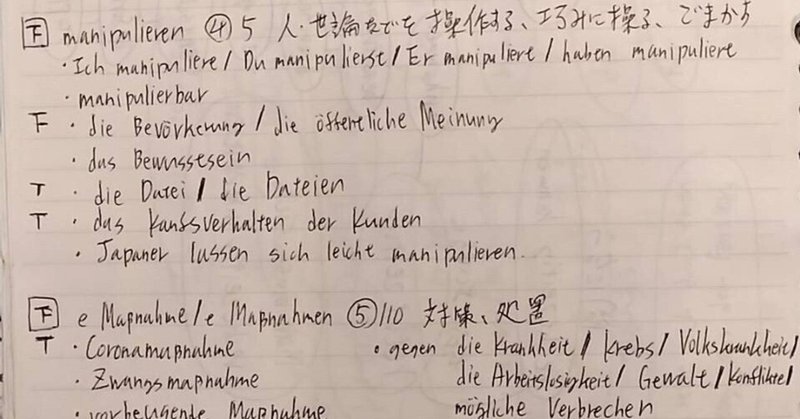 F manipulieren ④ 5 人・世論などを操作する、巧みに操る、ごまかす
・Ich manipuliere / Du manipulierst / Er manipuliere / haben manipuliere
・manipulierbar
F ・die Bevörkerung / die öffentliche Meinung
・das Bewusstsein
T ・die Datei / die Dateien
T ・das Kaufsverhalten der Kunden
・Japaner lassen sich leicht manipulieren.
F e Maβnahme / e Maβnahmen ⑤/10 対策、処置
T ・Coronamaβnahme ・gegen die Krankheit / Krebs / Volkskrankheit /
・Zwangsmaβnahme die Arbeitslosigkeit / Gewalt / Konflikte /
・vorbeugende Maβnahme mögliche Verbrechen